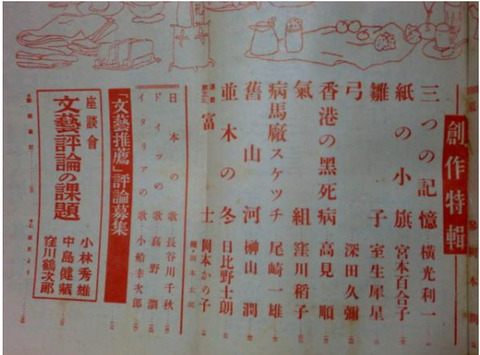 創作特輯
三つの記憶 横光利一
紙の小旗 宮本百合子
雛子 室生犀星
弓 深田久彌
香港の黒死病 高見順
氣組 窪川稲子
病馬廠スケッチ 尾崎一雄
舊山河 榊山潤
並木の冬 日比野士朗
富士 岡本かの子
日本の歌 長谷川千秋
ドイツの歌 高野瀏
イタリアの歌 小船幸次郎
「文藝推薦」評論募集
座談會
文藝評論の課題
小林秀雄
中島健蔵
窪川鶴次郎